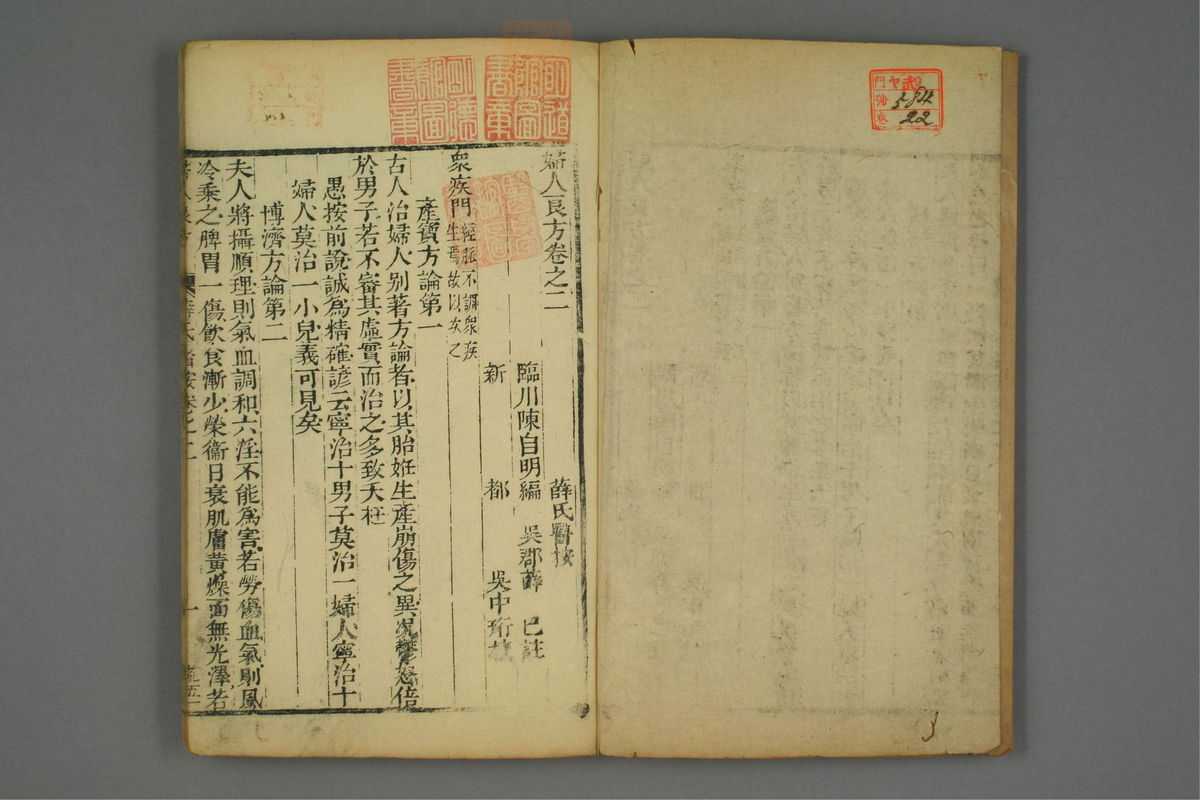 婦人良方卷之二
薛氏醫按
臨川陳自明編 吳郡薛 已註
新 都 吳中珩
衆疾門 經脈不調衆疾
生焉故以次之
產寶方論第一
古人治婦人別著方論者以其胎妊生產崩傷之異况鬱怒倍
於男子若不審其虛實而治之多致夭枉
愚按前說誠爲精確諺云寧治十男子莫治一婦人寧治十
婦人莫治一小兒義可見矣
博濟方論第二
夫人將攝順理則氣血調和六淫不能爲害若勞傷血氣則風
冷乘之脾胃一傷飲食漸少榮衞日衰肌膚黃燥面無光澤若
薛氏醫按卷之二
一
明德館圖書章
門 號 卷
584
22
3